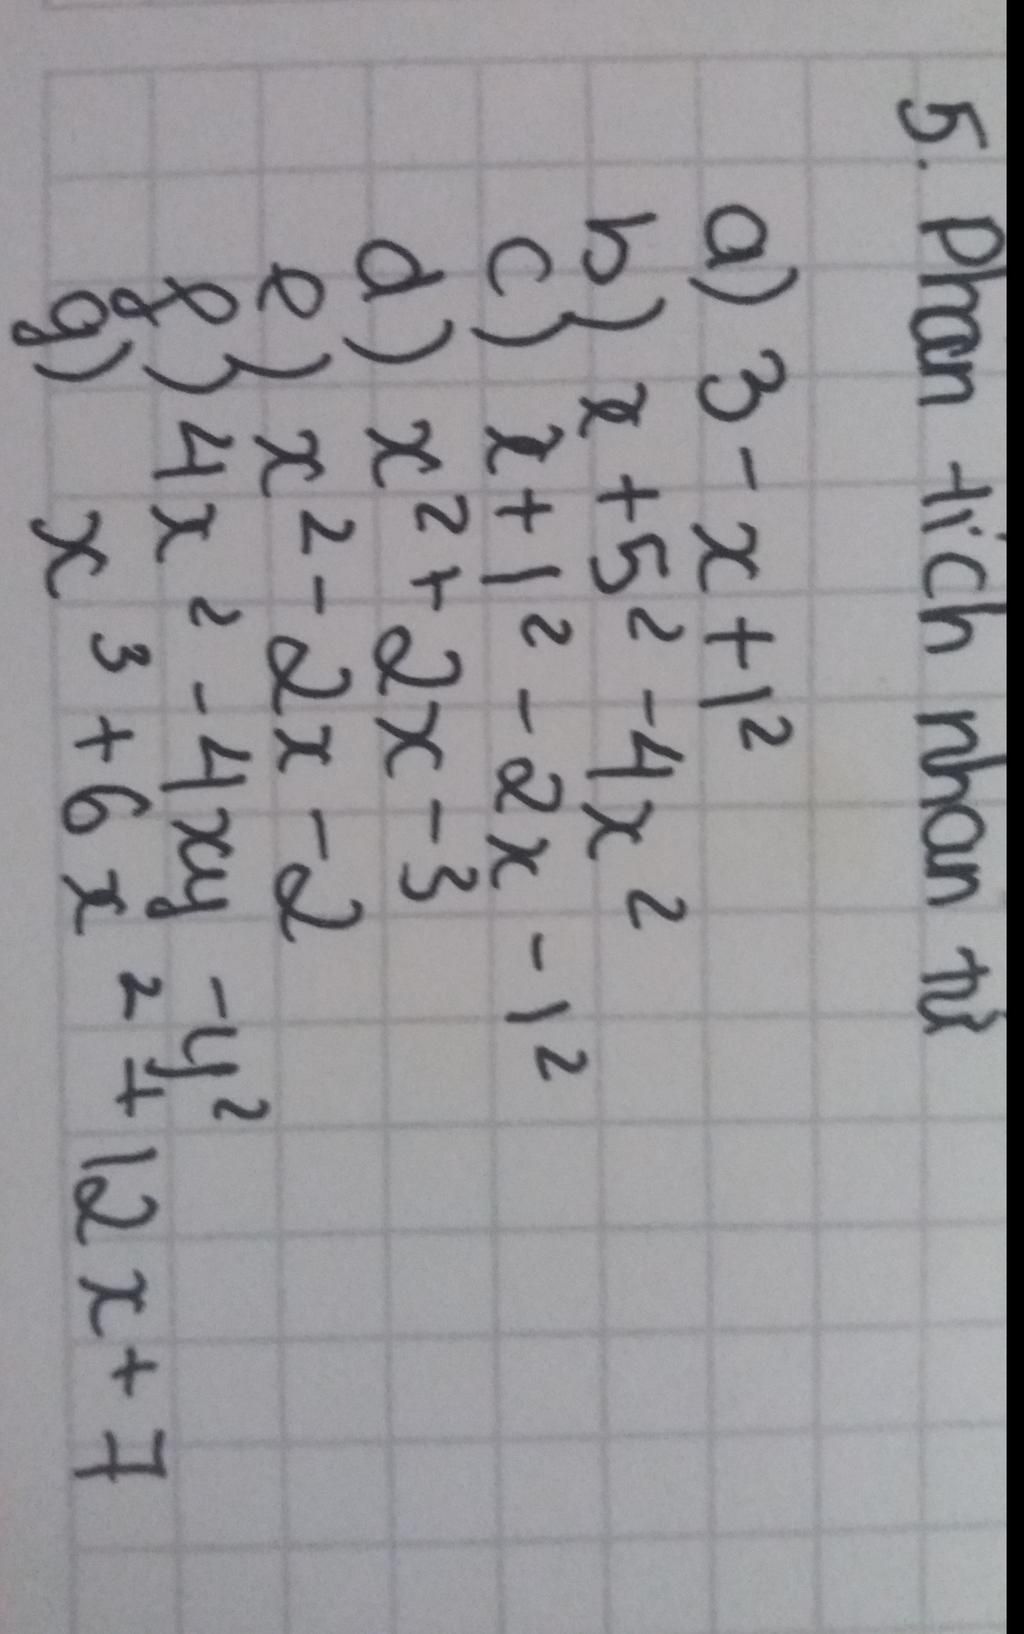 5. Phan tích nhan tử
a) 3 - x + 1²
b) x + 5² - 4x²
c) x + 1² - 2x - 1²
d) x² + 2x - 3
e) x² - 2x - 2
f) 4x² - 4xy - y²
g) x³ + 6x² + 12x + 7